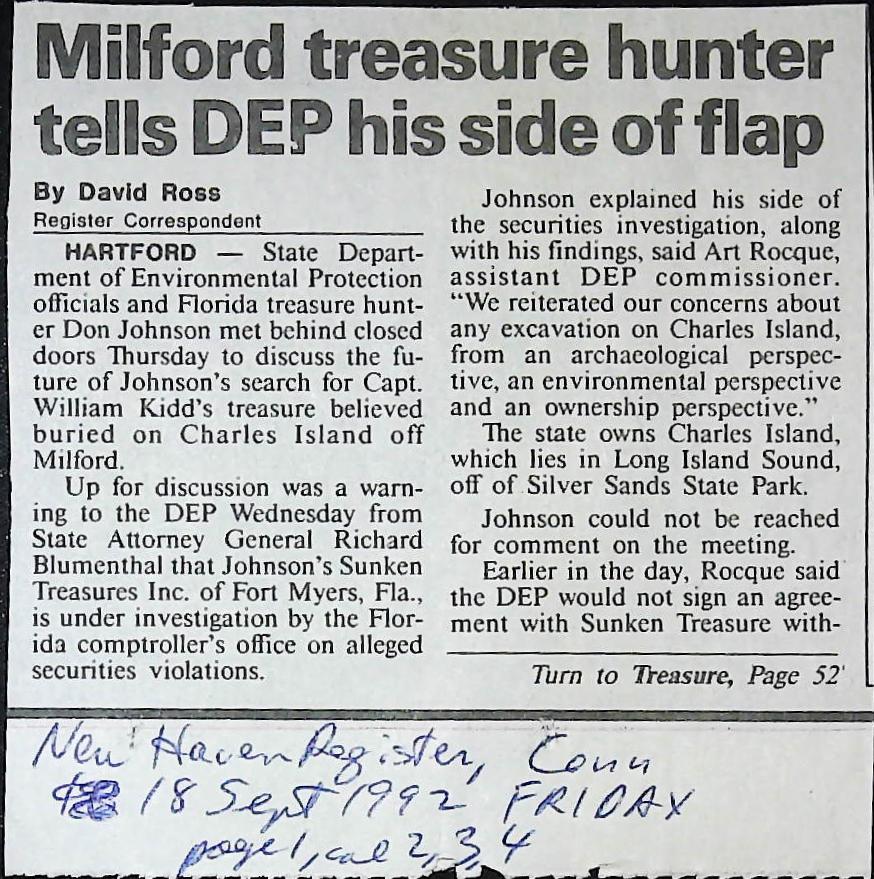 Milford treasure hunter
tells DEP his side of flap
By David Ross
Register Correspondent
HARTFORD — State Depart-
ment of Environmental Protection
officials and Florida treasure hunt-
er Don Johnson met behind closed
doors Thursday to discuss the fu-
ture of Johnson's search for Capt.
William Kidd's treasure believed
buried on Charles Island off
Milford.
Up for discussion was a warn-
ing to the DEP Wednesday from
State Attorney General Richard
Blumenthal that Johnson's Sunken
Treasures Inc. of Fort Myers, Fla.,
is under investigation by the Flor-
ida comptroller's office on alleged
securities violations.
Johnson explained his side of
the securities investigation, along
with his findings, said Art Rocque,
assistant DEP commissioner.
“We reiterated our concerns about
any excavation on Charles Island,
from an archaeological perspec-
tive, an environmental perspective
and an ownership perspective.”
The state owns Charles Island,
which lies in Long Island Sound,
off of Silver Sands State Park.
Johnson could not be reached
for comment on the meeting.
Earlier in the day, Rocque said
the DEP would not sign an agree-
ment with Sunken Treasure with-
Turn to Treasure, Page 52
New Haven Register, Conn
18 Sept 1992 FRIDAY
page 1, col 2, 3, 4